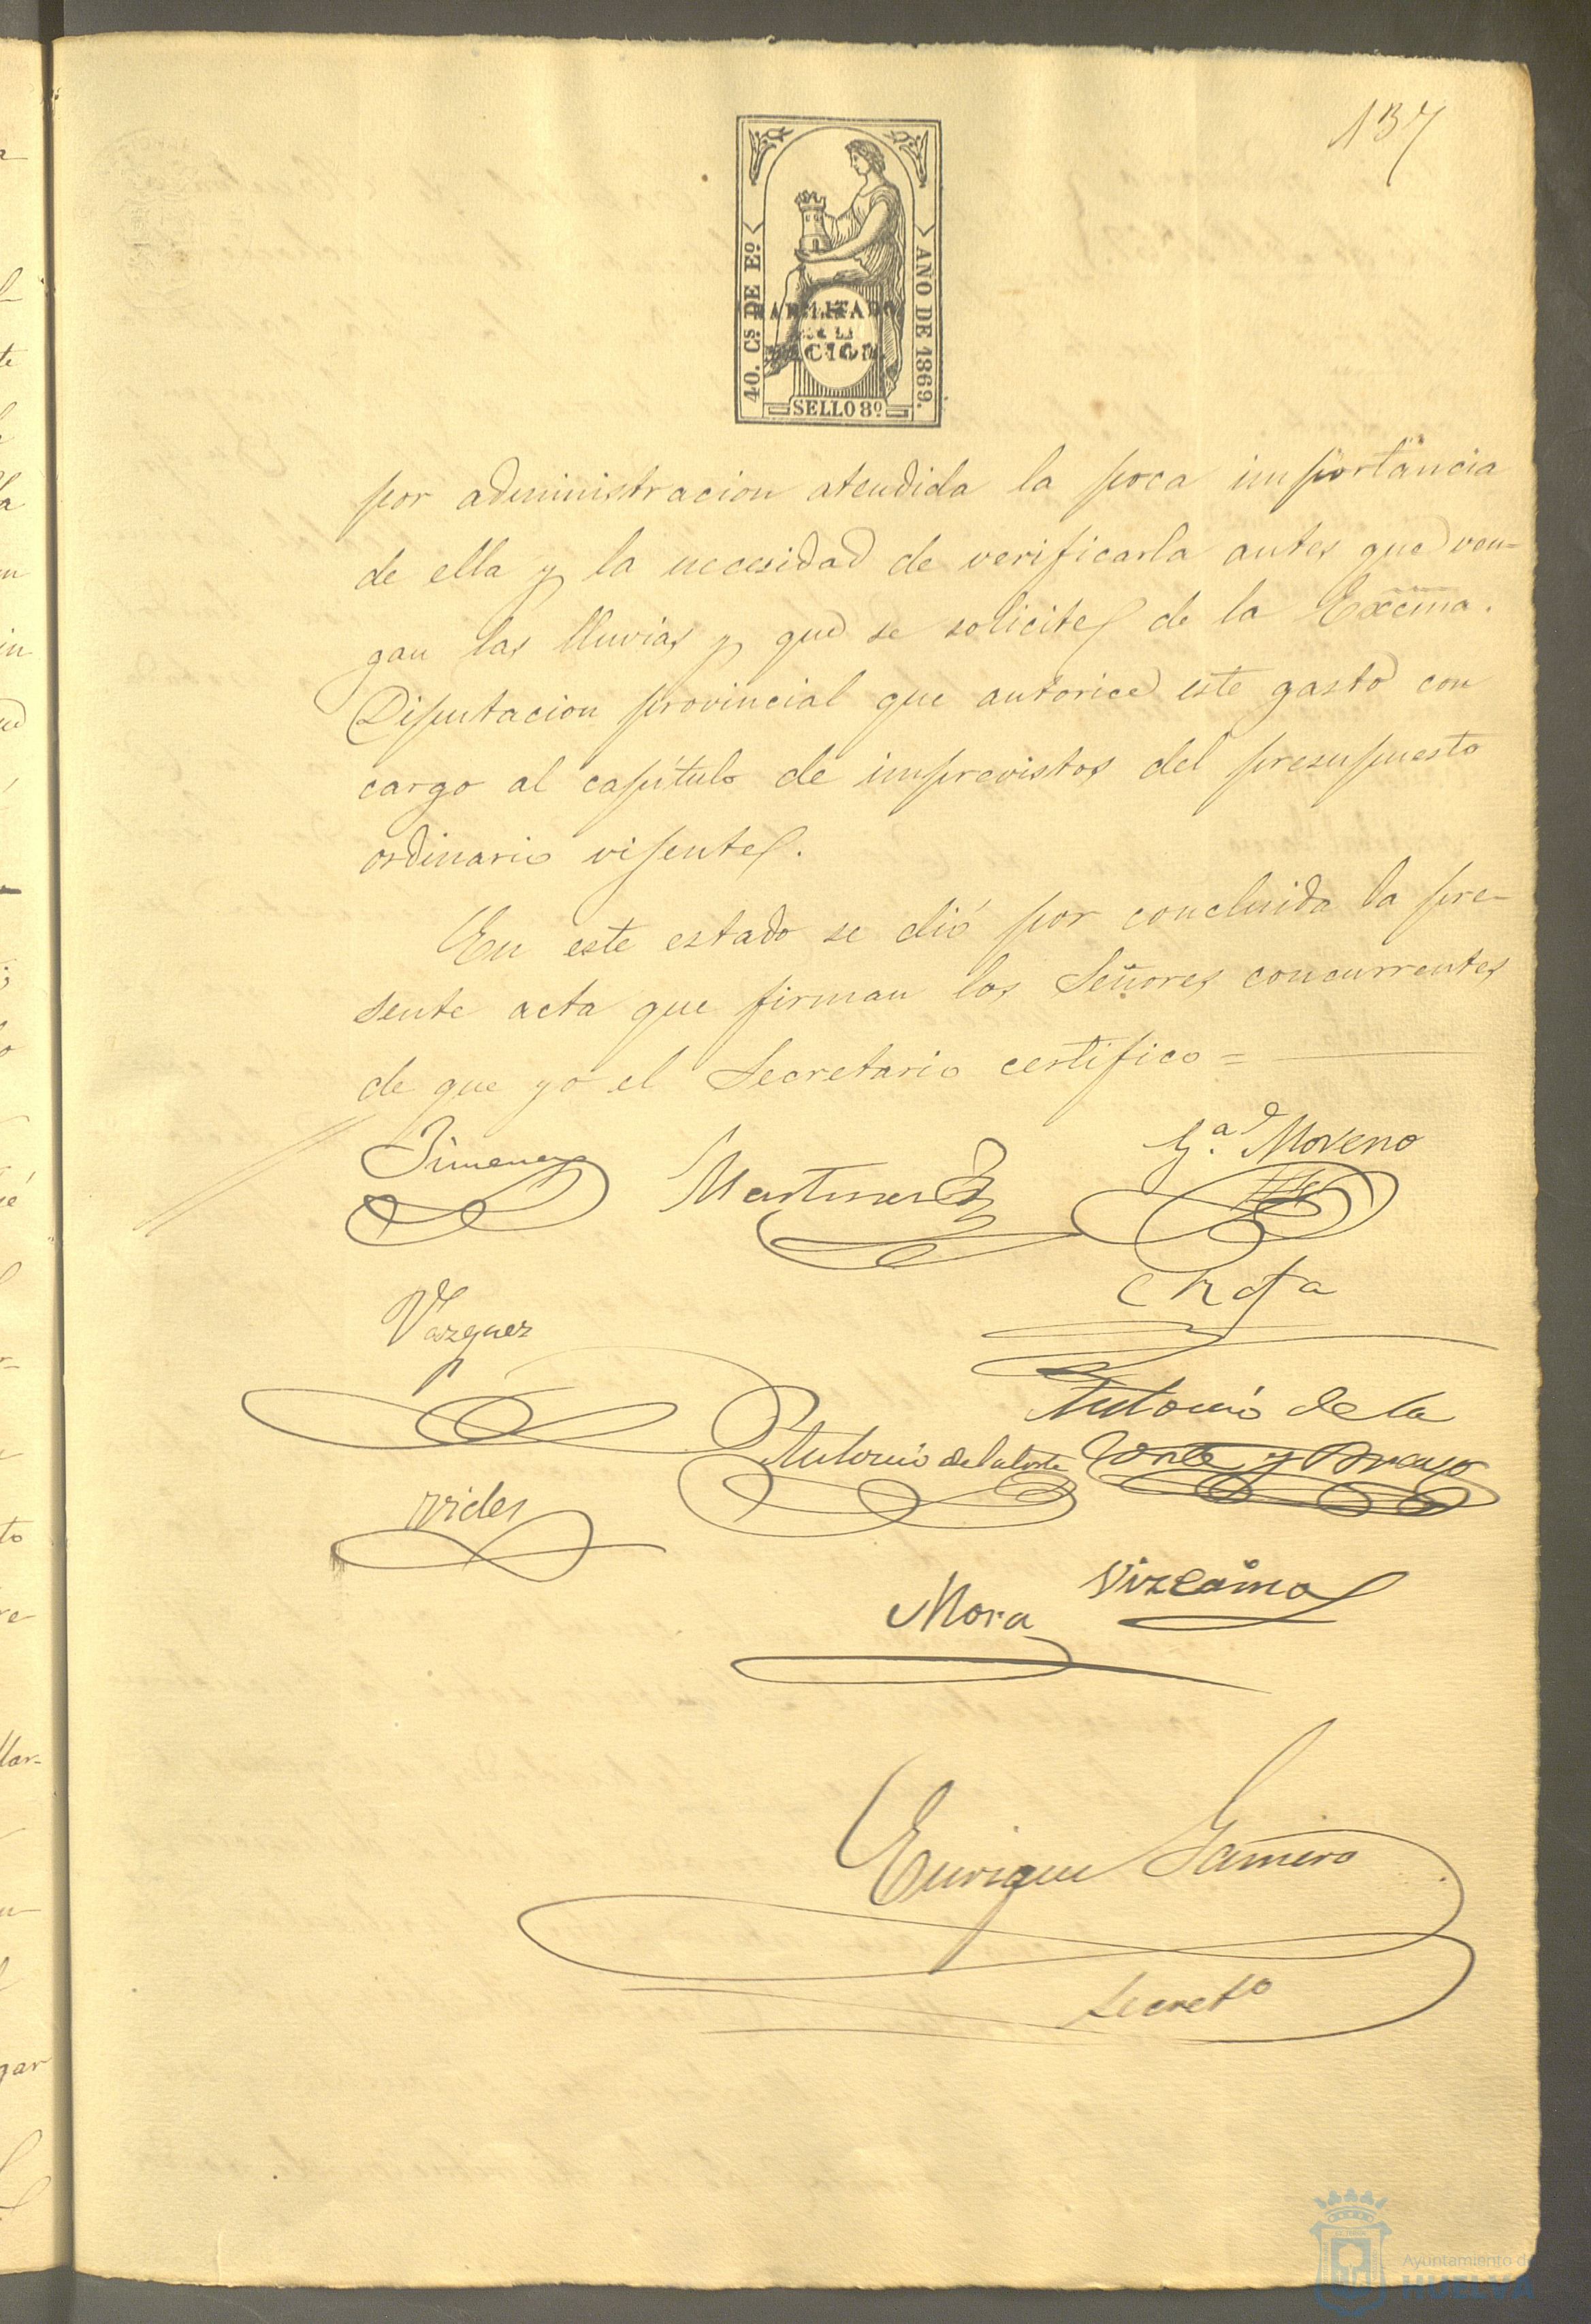 137
40. Cs. DE Eº.
AÑO DE 1869.
HABILITADO
POR LA
NACION.
SELLO 8º
por administracion atendida la poca importancia
de ella y la necesidad de verificarla antes que ven-
gan las lluvias y que se solicite de la Excma.
Diputacion provincial que autorice este gasto con
cargo al capítulo de imprevistos del presupuesto
ordinario vijente.
En este estado se dió por concluida la pre-
sente acta que firman los Señores concurrentes
de que yo el Secretario certifico =
Jimenez
Martinez
Gª. Moreno
Vazquez
Antonio de la
Antonio de la Corte
Corte y Bravo
Vides
Vizcaino
Mora
Enrique Gamero
Secretº
Ayuntamiento de
HUELVA